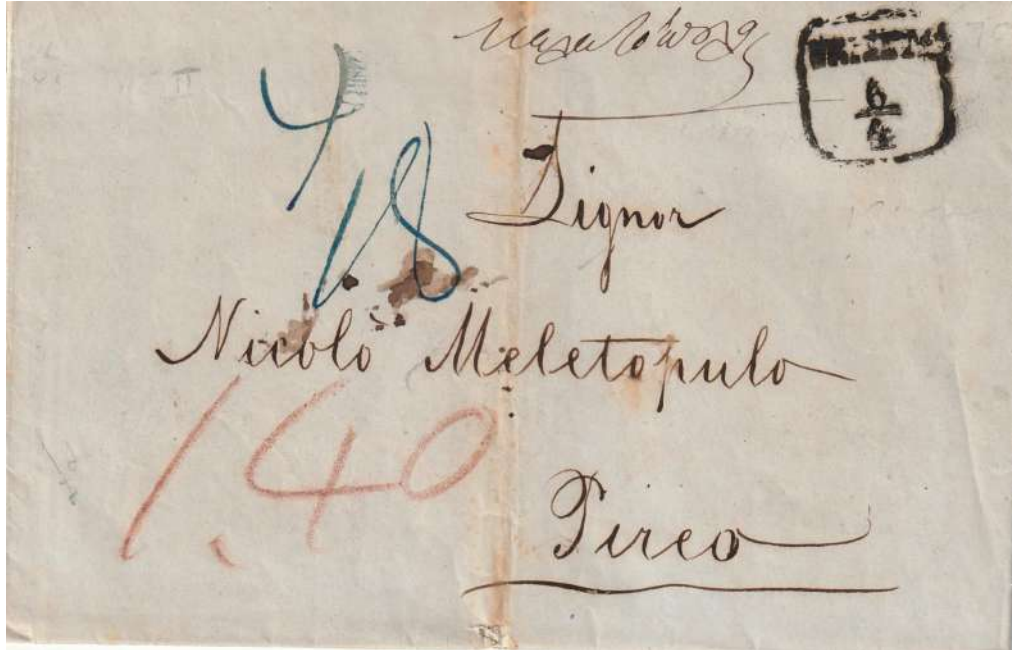 6
4
718
Signor
Nicolò Meletopulo
1.40
Pireo